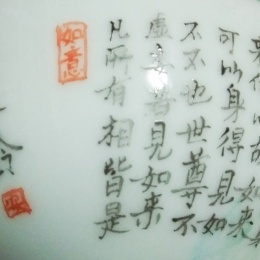 何以故如来
可以身得見如
不不也世尊不
虚妄若見如来
凡所有相皆是
如意